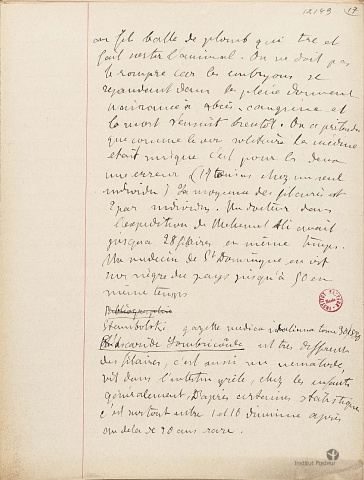 12143 17
au fil balle de plomb qui tire et
fait sortir l'animal. On ne doit pas
le rompre car les embryons se
répandent dans la plaie donnent
naissance à abcès, cangrène et
la mort s'ensuit bientôt. On a prétendu
que comme le ver solitaire la médine
était unique c'est pour les deux
une erreur (19 tænias chez un seul
individu) La moyenne des filaires est
2 par individu. Un docteur dans
l'expédition de Mehemet Ali avait
jusqu'a 28 filaires en même temps.
Un medecin de St Domingue en vit
sur nègre du pays jusqu'à 50 en
même temps
Bibliographie
Stambolski gazette médica italiana tome 30 1879
L'ascaride Lombricoïde est très different
des filaires, c'est aussi un nématode,
vit dans l'intestin grêle, chez les enfants
généralement. D'après certaines statistiques
c'est surtout entre 1 et 10 diminue après
au delà de 20 ans rare.
Institut Pasteur